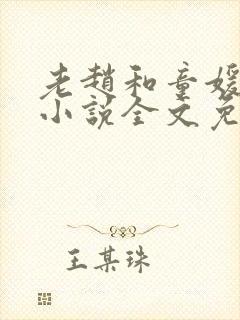 老趙和童媛
小說全文免
王某珠